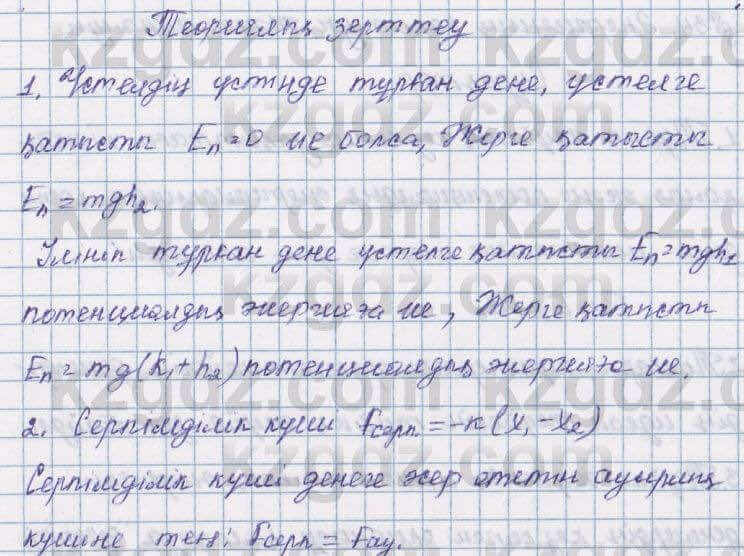 Теориялық зерттеу
1. Үстелдің үстінде тұрған дене, үстелге
қатысты Eп = 0 ие болса, Жерге қатысты
Eп = mgh₂.
Ілініп тұрған дене үстелге қатысты Eп = mgh₁
потенциалдық энергияға ие, Жерге қатысты
Eп = mg(h₁ + h₂) потенциалдық энергияға ие.
2. Серпімділік күші Fсерп. = -к (x₁ - x₂)
Серпімділік күші денеге әсер ететін ауырлық
күшіне тең: Fсерп = Fау.
kzgdz.com